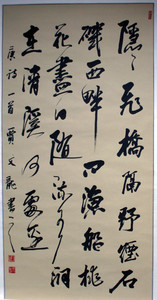 隱〻飛橋隔野煙石
磯西畔问漁船桃
花盡日随流水洞
在清溪何處邊
唐詩一首 賈文龍書